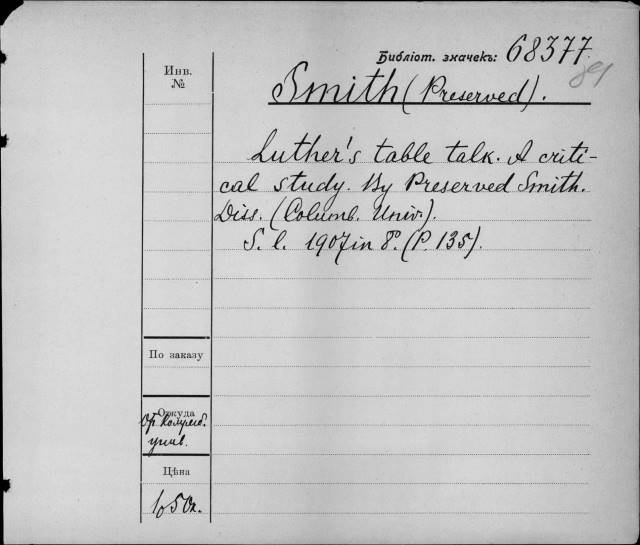 Библіот. значекъ: 68377.
89
Инв.
№
Smith (Preserved).
Luther's table talk. A criti-
cal study. By Preserved Smith.
Diss. (Columb. Univ.).
S. l. 1907 in 8º. (P. 135).
По заказу
Откуда
От Колумб.
унив.
Цѣна